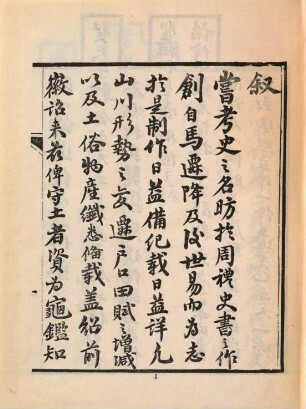 叙
嘗考史之名昉於周禮史書之作
創自馬遷降及後世易而為志
於是制作日益備紀載日益詳凡
山川形勢之变遷户口田賦之增減
以及土俗物産纖悉俻載盖紹前
徽詔来兹俾守土者資为龜鑑知
1